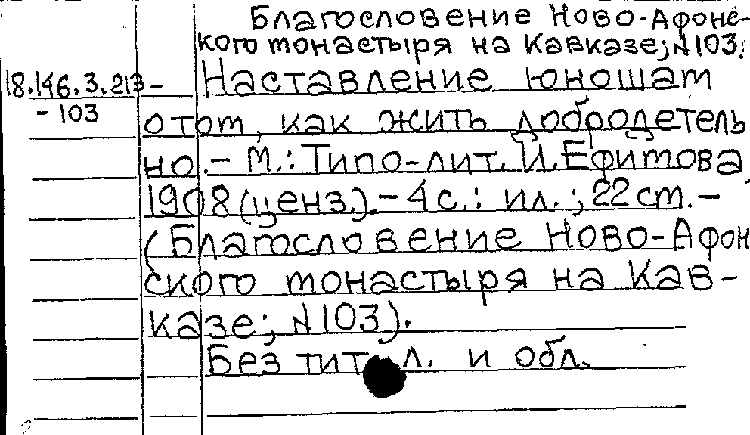 Благословение Ново-Афонс-
кого монастыря на Кавказе; N103.
18.146.3.213- Наставление юношам
-103
о том, как жить добродетель
но. – М.: Типо-лит. И. Ефимова
1908 (ценз.). – 4 с.: ил.; 22 ст. –
(Благословение Ново-Афон
ского монастыря на Кав-
казе; N103).
Без тит. л. и обл.